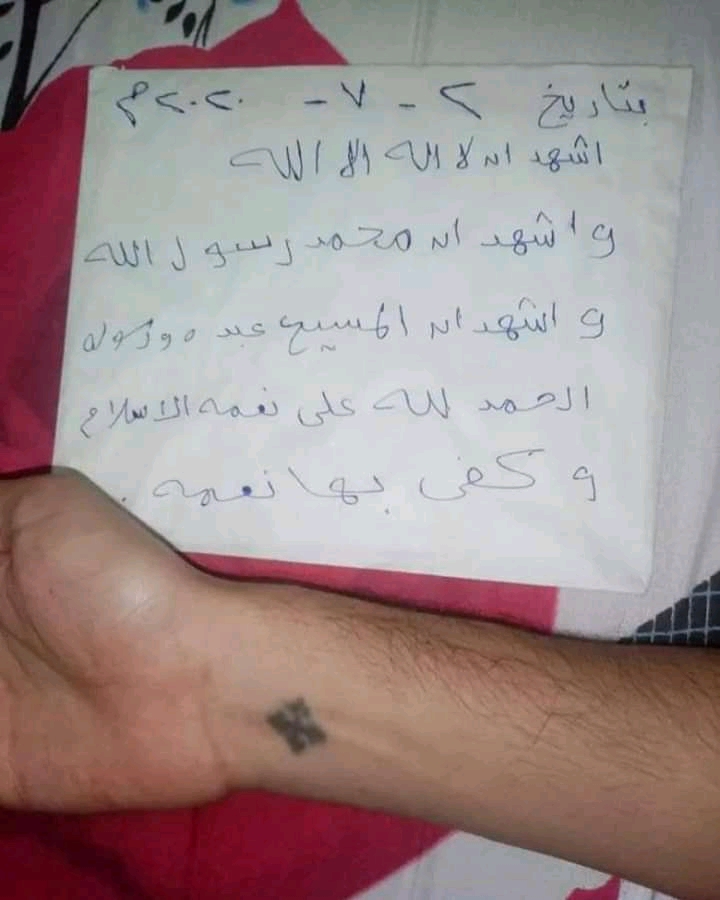 بتاريخ ٢ - ٧ - ٢٠٢٠م
اشهد ان لا اله الا الله
و اشهد ان محمد رسول الله
و اشهد ان المسيح عبده ورسوله
الحمد لله على نعمه الاسلام
و كفى بها نعمه .